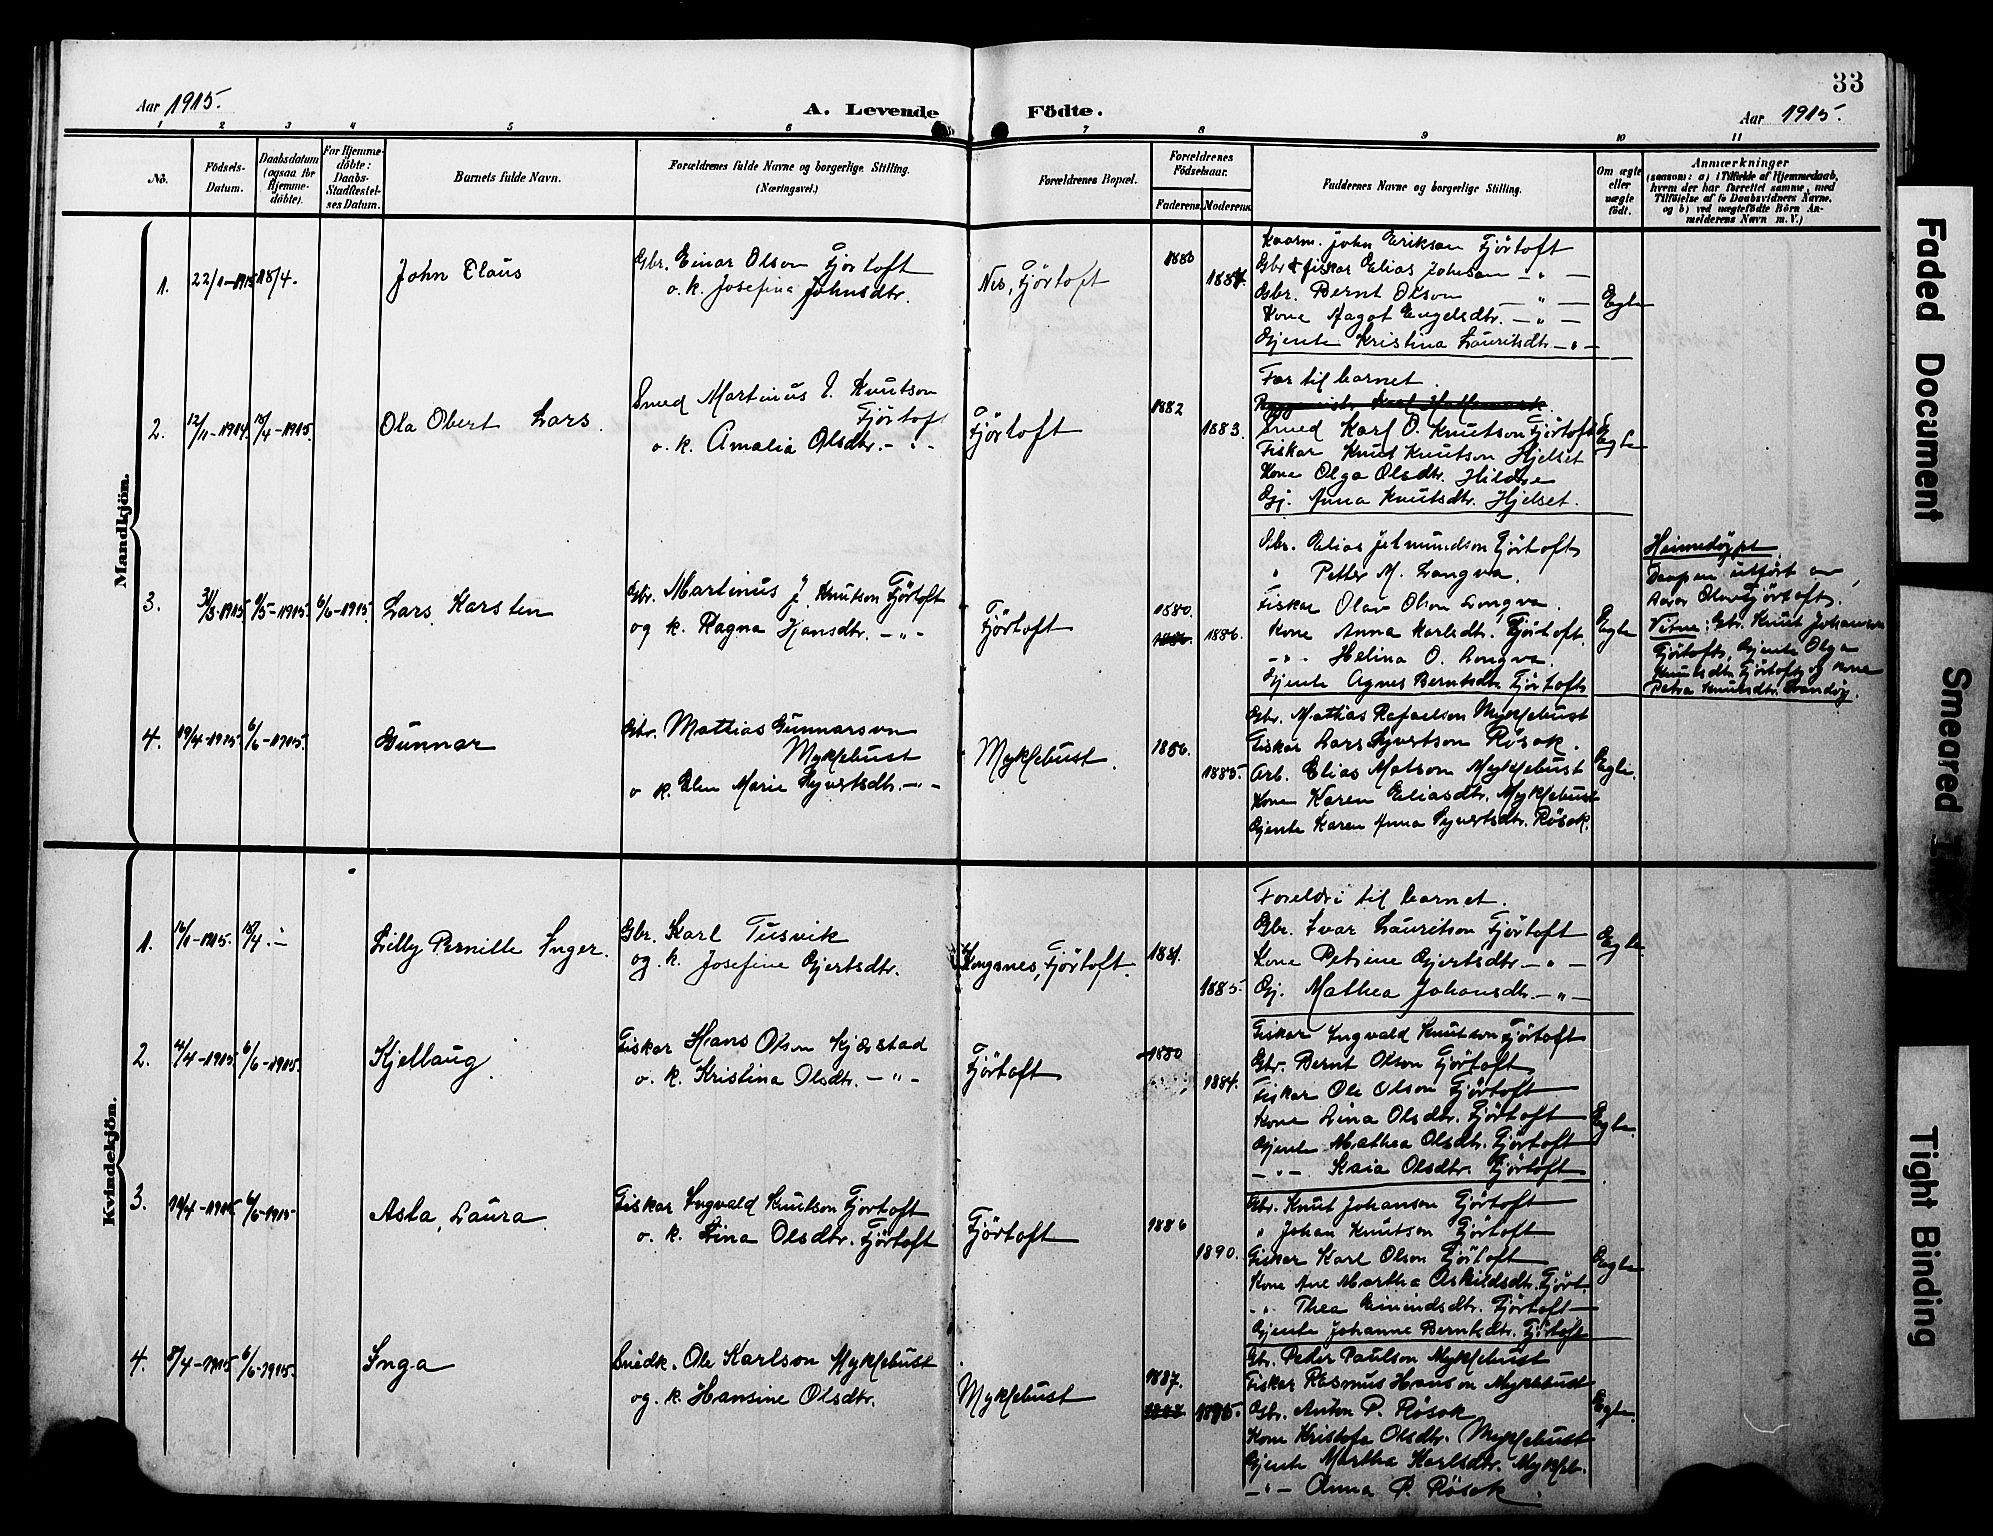 33
Aar 1915.
A. Levende Födte.
Aar 1915.
1 2 3 4 5 6 7 8 9 10 11
No.
Födsels-Datum.
Daabsdatum (ogsaa for Hjemme-döbte).
For Hjemme-döbte: Daabs-Stadfæstel-ses Datum.
Barnets fulde Navn.
Forældrenes fulde Navne og borgerlige Stilling.
(Næringsvei.)
Forældrenes Bopæl.
Forældrenes Födselsaar.
Faderens. Moderens.
Faddernes Navne og borgerlige Stilling.
Om ægte eller uægte født.
Anmærkninger
(saasom: a) i Tilfælde af Hjemmedaab,
hvem der har forrettet samme, med
Tilföielse af to Daabsvidners Navne,
og b) ved uægtefödte Börn An-
melderens Navn m. V.)
Mandkjön.
1. 22/1-1915 18/4. John Claus
Gbr. Einar Olson Fjörtoft
o. k. Josefina Johnsdtr.
Nes, Fjörtoft
1880
1887.
Kaarm. John Erikson Fjörtoft
Gbr & fiskar Elias Johnson - " -
Gbr. Bernt Olson - " -
Kone Aagot Engelsdtr. - " -
Gjente Kristina Lauritsdtr - " -
Egte
2. 12/11-1914. 18/4-1915. Ola Obert Lars.
Smed Martinus E. Knutson
Fjörtoft
o. k. Amalia Olsdtr. - " -
Fjörtoft
1882
1883.
Far til barnet.
Smed Karl O. Knutson Fjörtoft
Fiskar Knut Knutson Hjelset
Kone Olga Olsdtr. Hildre
Gj. Anna Knutsdtr. Hjelset.
Egte
3. 31/3-1915. 9/5-1915. 6/6-1915. Lars Karsten
Gbr. Martinus J. Knutson Fjörtoft
og k. Ragna Hansdtr. - " -
Fjörtoft
1880.
1886.
Gbr. Elias Jetmundson Fjörtoft
" Petter M. Longva.
Fiskar Olav Olson Longva.
Kone Anna Karlsdtr. Fjörtoft.
- " - Helina O. Longva.
Gjente Agnes Berntsdtr Fjörtoft
Egte
Heimedöypt.
Daapen utfört av
Olav Fjörtoft.
Vitne: Gbr. Knut Johanson
Fjörtoft, Gjente Olga
Knutsdtr. Fjörtoft og kone
Petra Knutsdtr. Sandöy.
4. 19/4-1915. 6/6-1915. Gunnar
Gbr. Mathias Gunnarson
Myklebust
o k. Elen Marie Syvertsdtr. - " -
Myklebust.
1886.
1885.
Gbr. Mathias Rafaelson Myklebust
Fiskar Lars Syvertson Rösok.
Arb. Elias Matson Myklebust
Kone Karen Eliasdtr. Myklebust
Gjente Karen Anna Syvertsdtr. Rösok.
Egte.
Kvindekjön.
1. 16/1-1915. 18/4. - Lilly Pernille Inger.
Gbr. Karl Tusvik
og. k. Josefine Gjertsdtr.
Kongsnes, Fjörtoft.
1881.
1885.
Foreldri til barnet.
Gbr. Ivar Lauritson Fjörtoft
Kone Petrine Gjertsdtr - " -
Gj. Mathea Johansdtr. - " -
Egte.
2. 4/4-1915. 6/6-1915. Kjellaug.
Fiskar Hans Olson Kjærstad
o. k. Kristina Olsdtr. - " -
Fjörtoft
1880
1884.
Fiskar Ingvald Knutson Fjörtoft
Gbr. Bernt Olson Fjörtoft
Fiskar Ole Olson Fjörtoft
Kone Lina Olsdtr. Fjörtoft
Gjente Mathea Olsdtr. Fjörtoft
- " - Kaia Olsdtr. Fjörtoft
Egte.
3. 19/4-1915. 6/6-1915 Asta, Laura.
Fiskar Ingvald Knutson Fjörtoft
o. k. Lina Olsdtr. Fjörtoft
Fjörtoft
1886
1890.
Gbr. Knut Johanson Fjörtoft
" Johan Knutson Fjörtoft
Fiskar Karl Olson Fjörtoft
Kone Ane Martha Oskildsdtr. Fjört.
- " Thea Emindsdtr. Fjörtoft
Gjente Johanne Berntsdtr. Fjörtoft
Egte
4. 8/4-1915 6/6-1915. Inga
Snedk. Ole Karlson Myklebust
og. k. Hansine Olsdtr.
Myklebust
1887.
1895.
Gbr. Peder Paulson Myklebust
Fiskar Rasmus Hanson Myklebust
Gbr. Anton P. Rösok
Kone Kristofa Olsdtr. Myklebust
Gjente Martha Karlsdtr. Mykleb.
- " - Anna P. Rösok.
Egte.
Faded Document
Smeared
Tight Binding